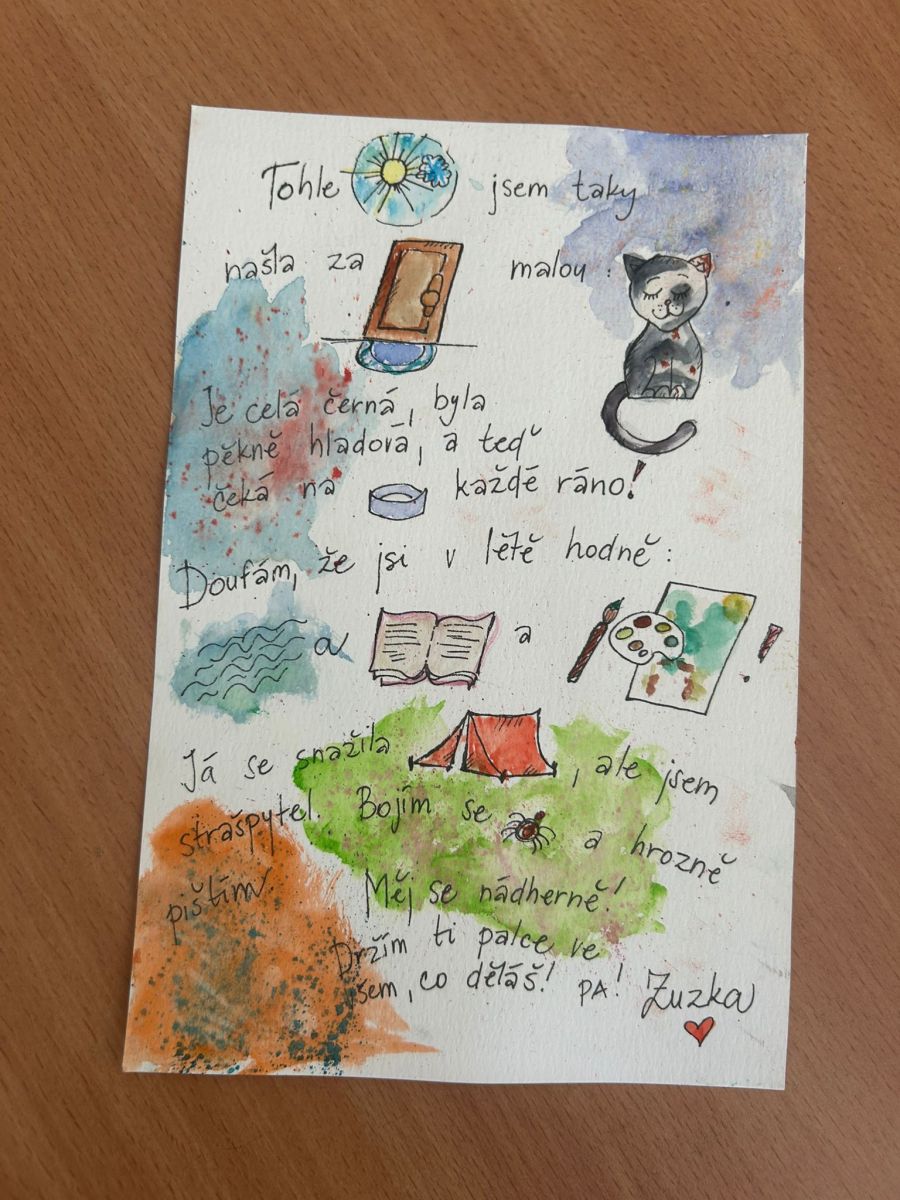 Tohle jsem taky
našla za malou :
Je celá černá, byla
pěkně hladová, a teď
čeká na každé ráno!
Doufám, že jsi v létě hodně :
a a !
Já se snažila , ale jsem
strašpytel. Bojím se a hrozně
pištím. Měj se nádherně!
Držím ti palce ve
všem, co děláš! PA! Zuzka